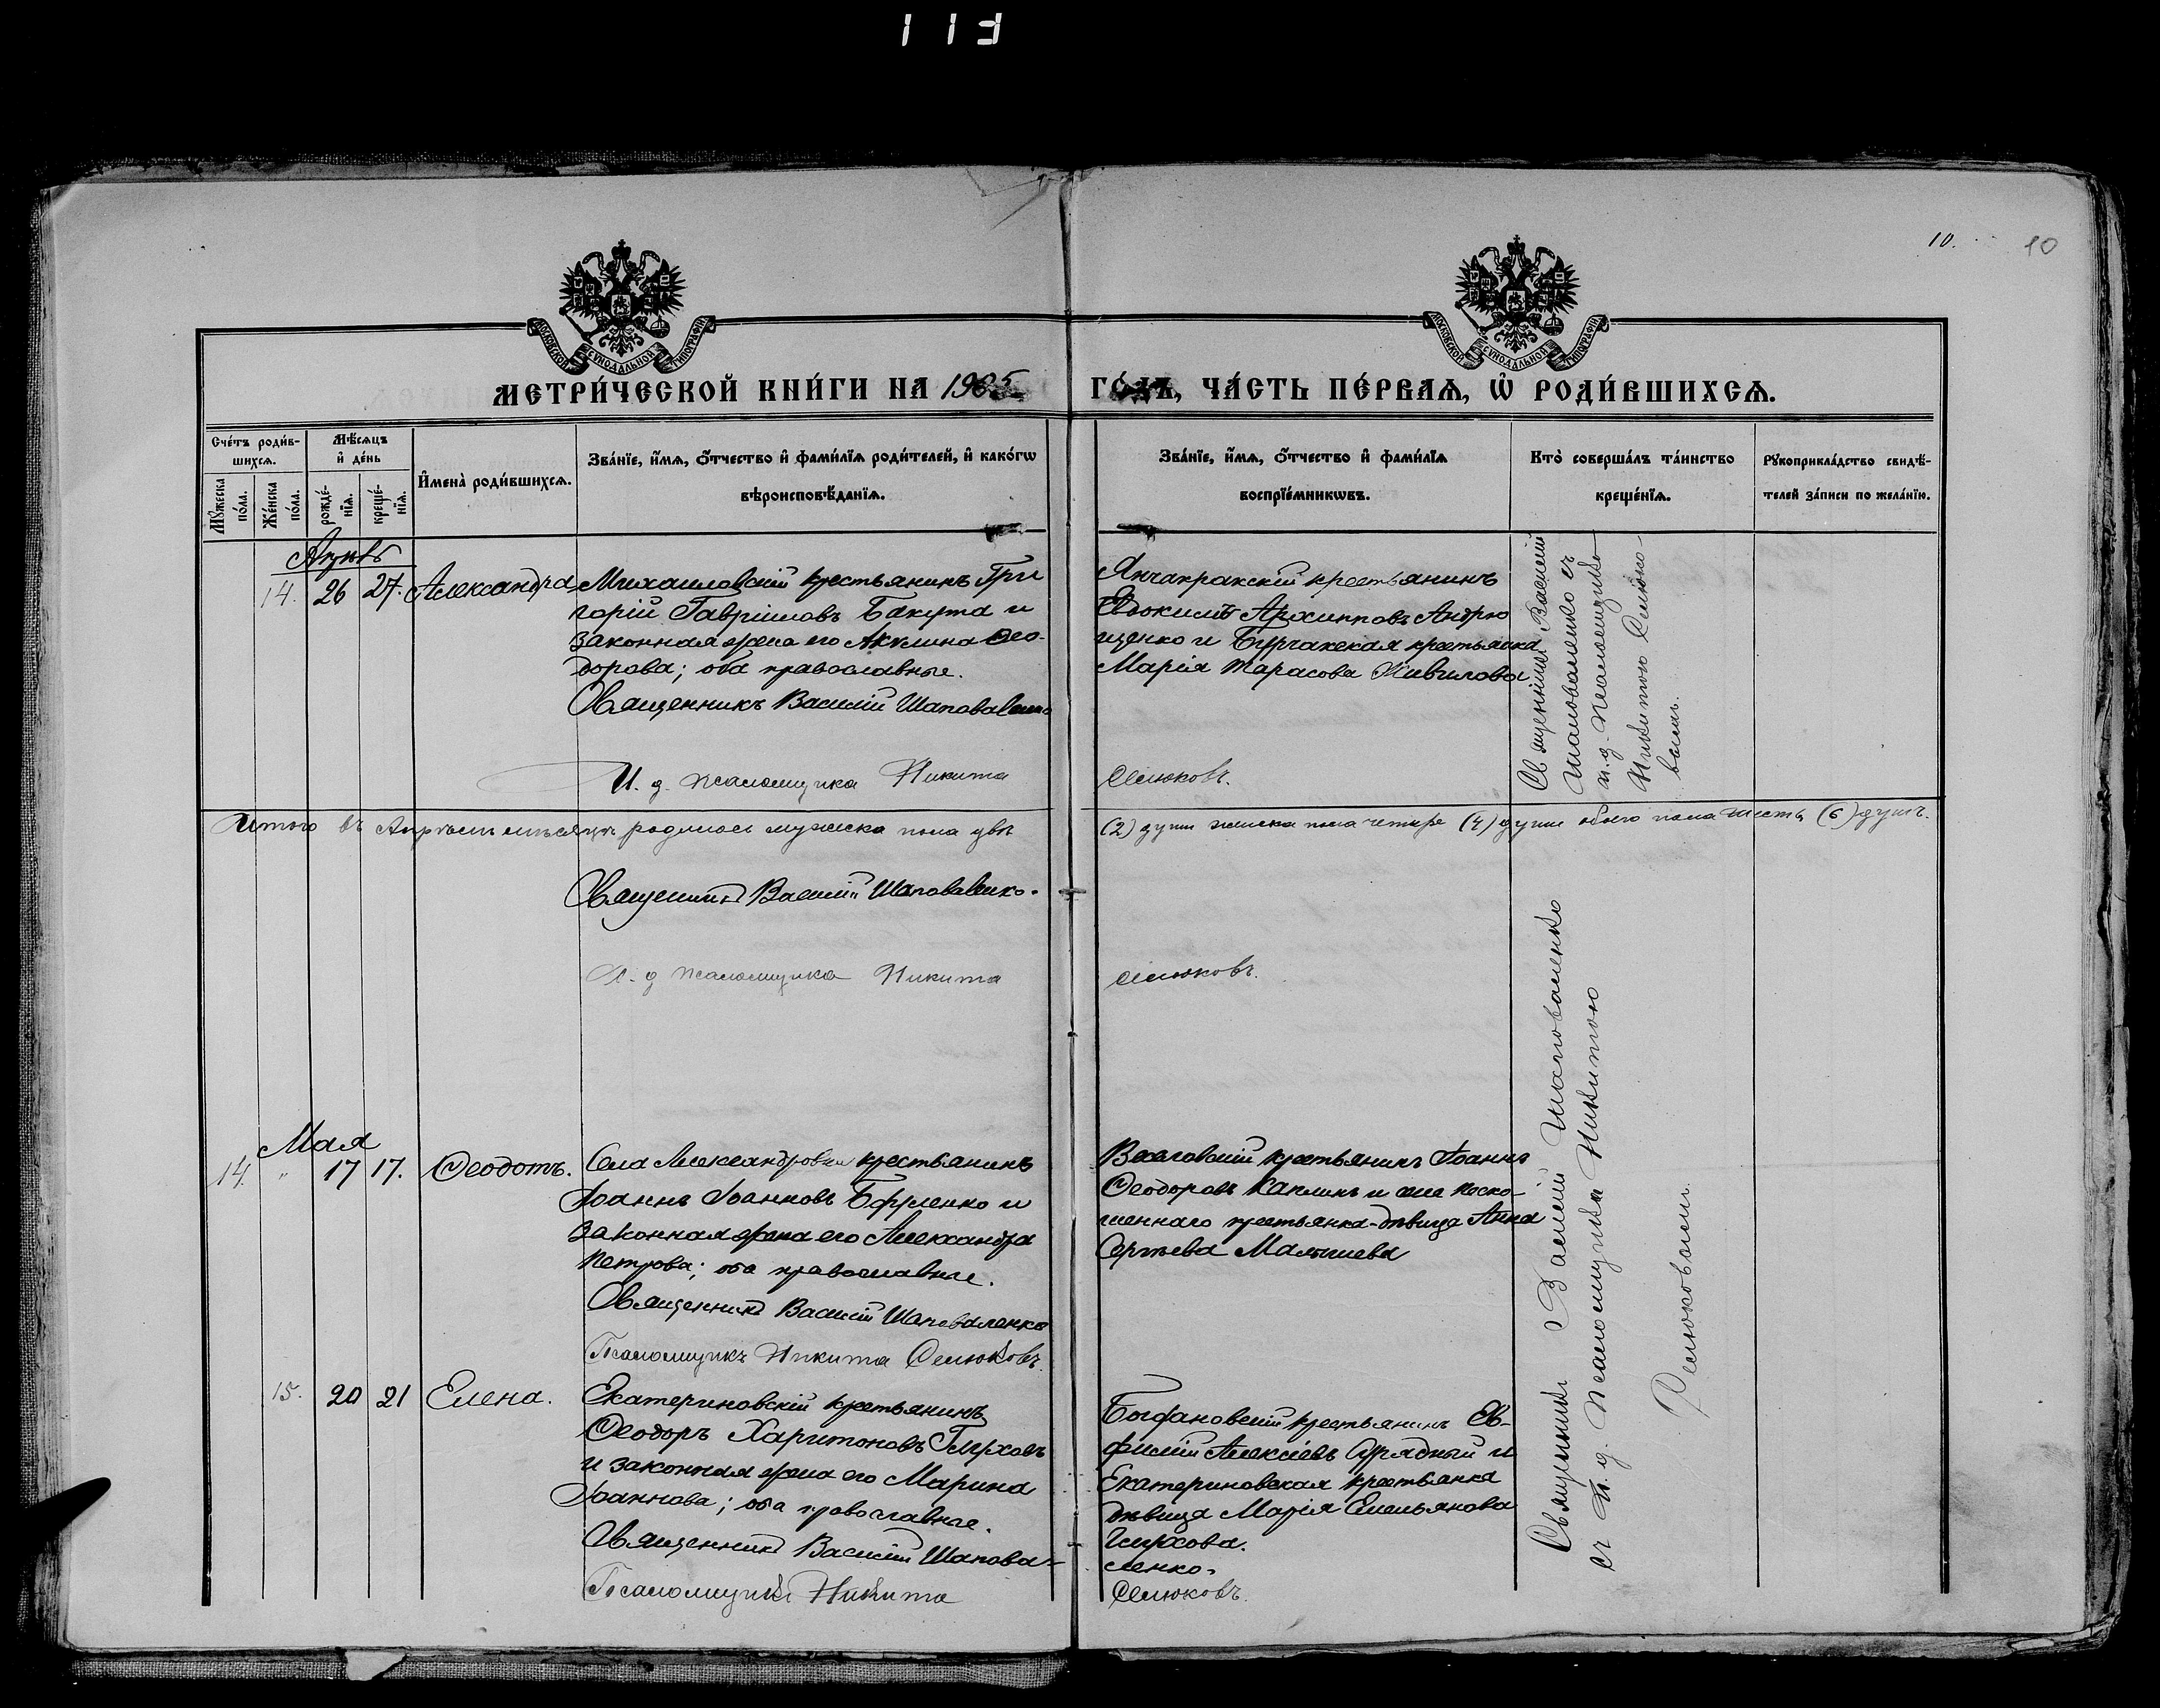 113
10.
10
МОСКОВСКОЙ СѴНОДАЛЬНОЙ ТИПОГРАФІИ
МОСКОВСКОЙ СѴНОДАЛЬНОЙ ТИПОГРАФІИ
МЕТРИ́ЧЕСКОЙ КНИ́ГИ НА 1905 ГО́ДЪ, ЧА́СТЬ ПЕ́РВАѦ, Ѡ РОДИ́ВШИХСѦ.
Сче́тъ роди́в-
шихсѧ.
Мѣ́сѧцъ
и҆ де́нь
Мꙋ́жеска
по́ла.
Же́нска
по́ла.
рожде́-
нїѧ.
креще́-
нїѧ.
И҆мена̀ роди́вшихсѧ.
Зва́нїе, и҆́мѧ, ѻ҆́тчество и҆ фами́лїѧ роди́телей, и҆ како́гѡ
вѣроисповѣ́данїѧ.
Зва́нїе, и҆́мѧ, ѻ҆́тчество и҆ фами́лїѧ
воспрїе́мниковъ.
Кто̀ соверша́лъ та́инство
креще́нїѧ.
Рꙋкоприкла́дство свидѣ́-
телей за́писи по жела́нїю.
14. 26 27. Александра
Михаиловскій крестьянинъ Гри
горій Гавріиловъ Бакута и
законная жена его Акулина Ѳео-
дорова; оба православные.
Священникъ Василій Шаповаленко
И. д. псаломщика Никита Селюковъ.
Янчакракскій крестьянинъ
Евдокимъ Архипповъ Андрю
щенко и Бурчакская крестьянка
Марія Тарасова
Священникъ Василій
Шаповаленко съ
и. д. псаломщика
Никитою Селюко-
вымъ.
Итого въ Апрѣлѣ мѣсяцѣ родилось мужска пола двѣ (2) души женска пола четыре (4) души обоего пола шесть (6) душъ.
Священникъ Василій Шаповаленко.
И. д псаломщика Никита Селюковъ.
Мая
14. " 17 17. Ѳеодотъ.
Села Александровки крестьянинъ
Іоаннъ Іоанновъ и
законная жена его Александра
Петрова; оба православные.
Священникъ Василій Шаповаленко
Псаломщикъ Никита Селюковъ.
Веселовскій крестьянинъ Іоаннъ
Ѳеодоровъ Каплинъ и села
крестьянка-дѣвица Анна
Сергѣева Малышева
15. 20 21 Елена.
Екатериновскій крестьянинъ
Ѳеодоръ Харитоновъ
и законная жена его Марина
Іоаннова; оба православные.
Священникъ Василій Шапова-
ленко.
Псаломщикъ Никита Селюковъ.
Богдановскій крестьянинъ Ев-
фимій Алексіевъ и
Екатериновская крестьянка
дѣвица Марія Емельянова
Священникъ Василій Шаповаленко
съ И. д. Псаломщика Никитою
Селюковымъ.